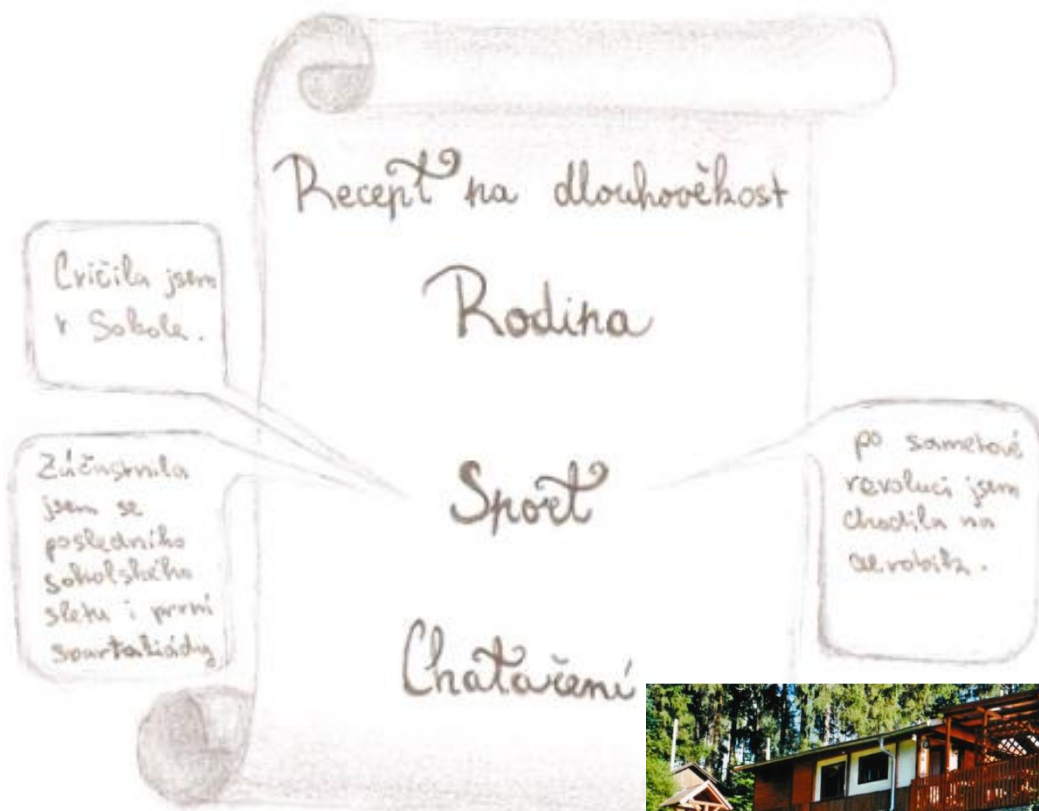 Recept na dlouhověkost
Rodina
Cvičila jsem
v Sokole.
Sport
Zúčastnila
jsem se
posledního
sokolského
sletu i první
spartakiády
po sametové
revoluci jsem
chodila na
aerobik.
Chataření